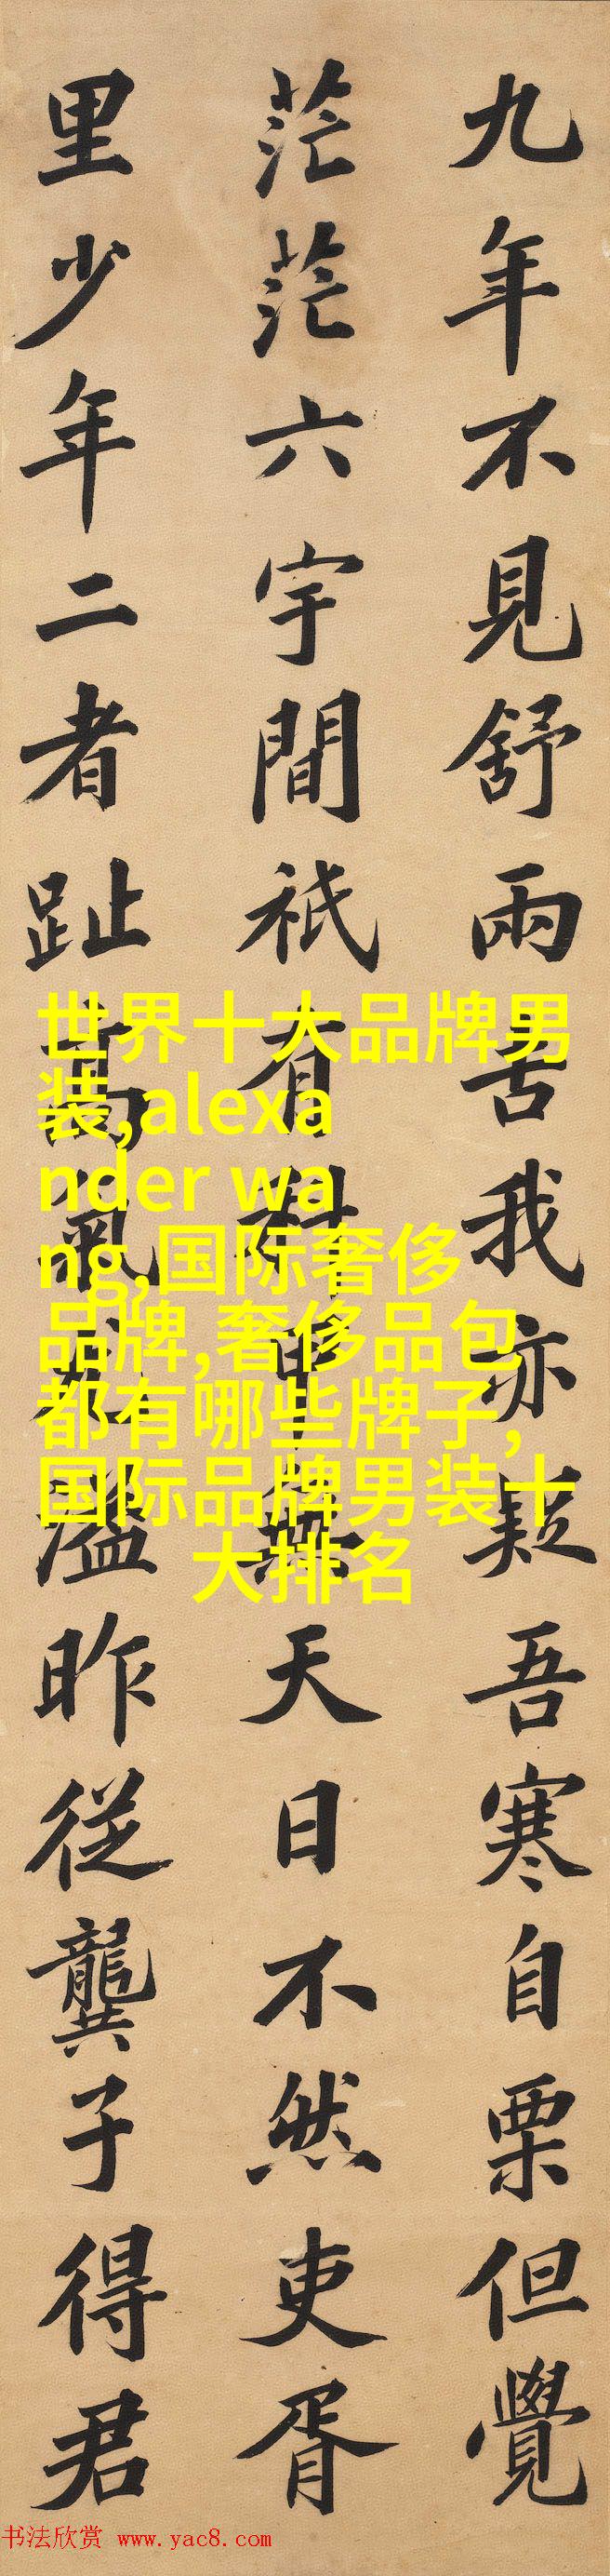 九年不見舒兩舌我亦疑吾寒自栗但覺
茫茫六宇間祇有科甲無天日不然吏胥
里少年二者趾高氣溢昨從龔子得君
世界十大品牌男
装,alexa
nder wa
ng,国际奢侈
品牌,奢侈品包
都有哪些牌子,
国际品牌男装十
大排名
书法欣赏 www.yac8.com